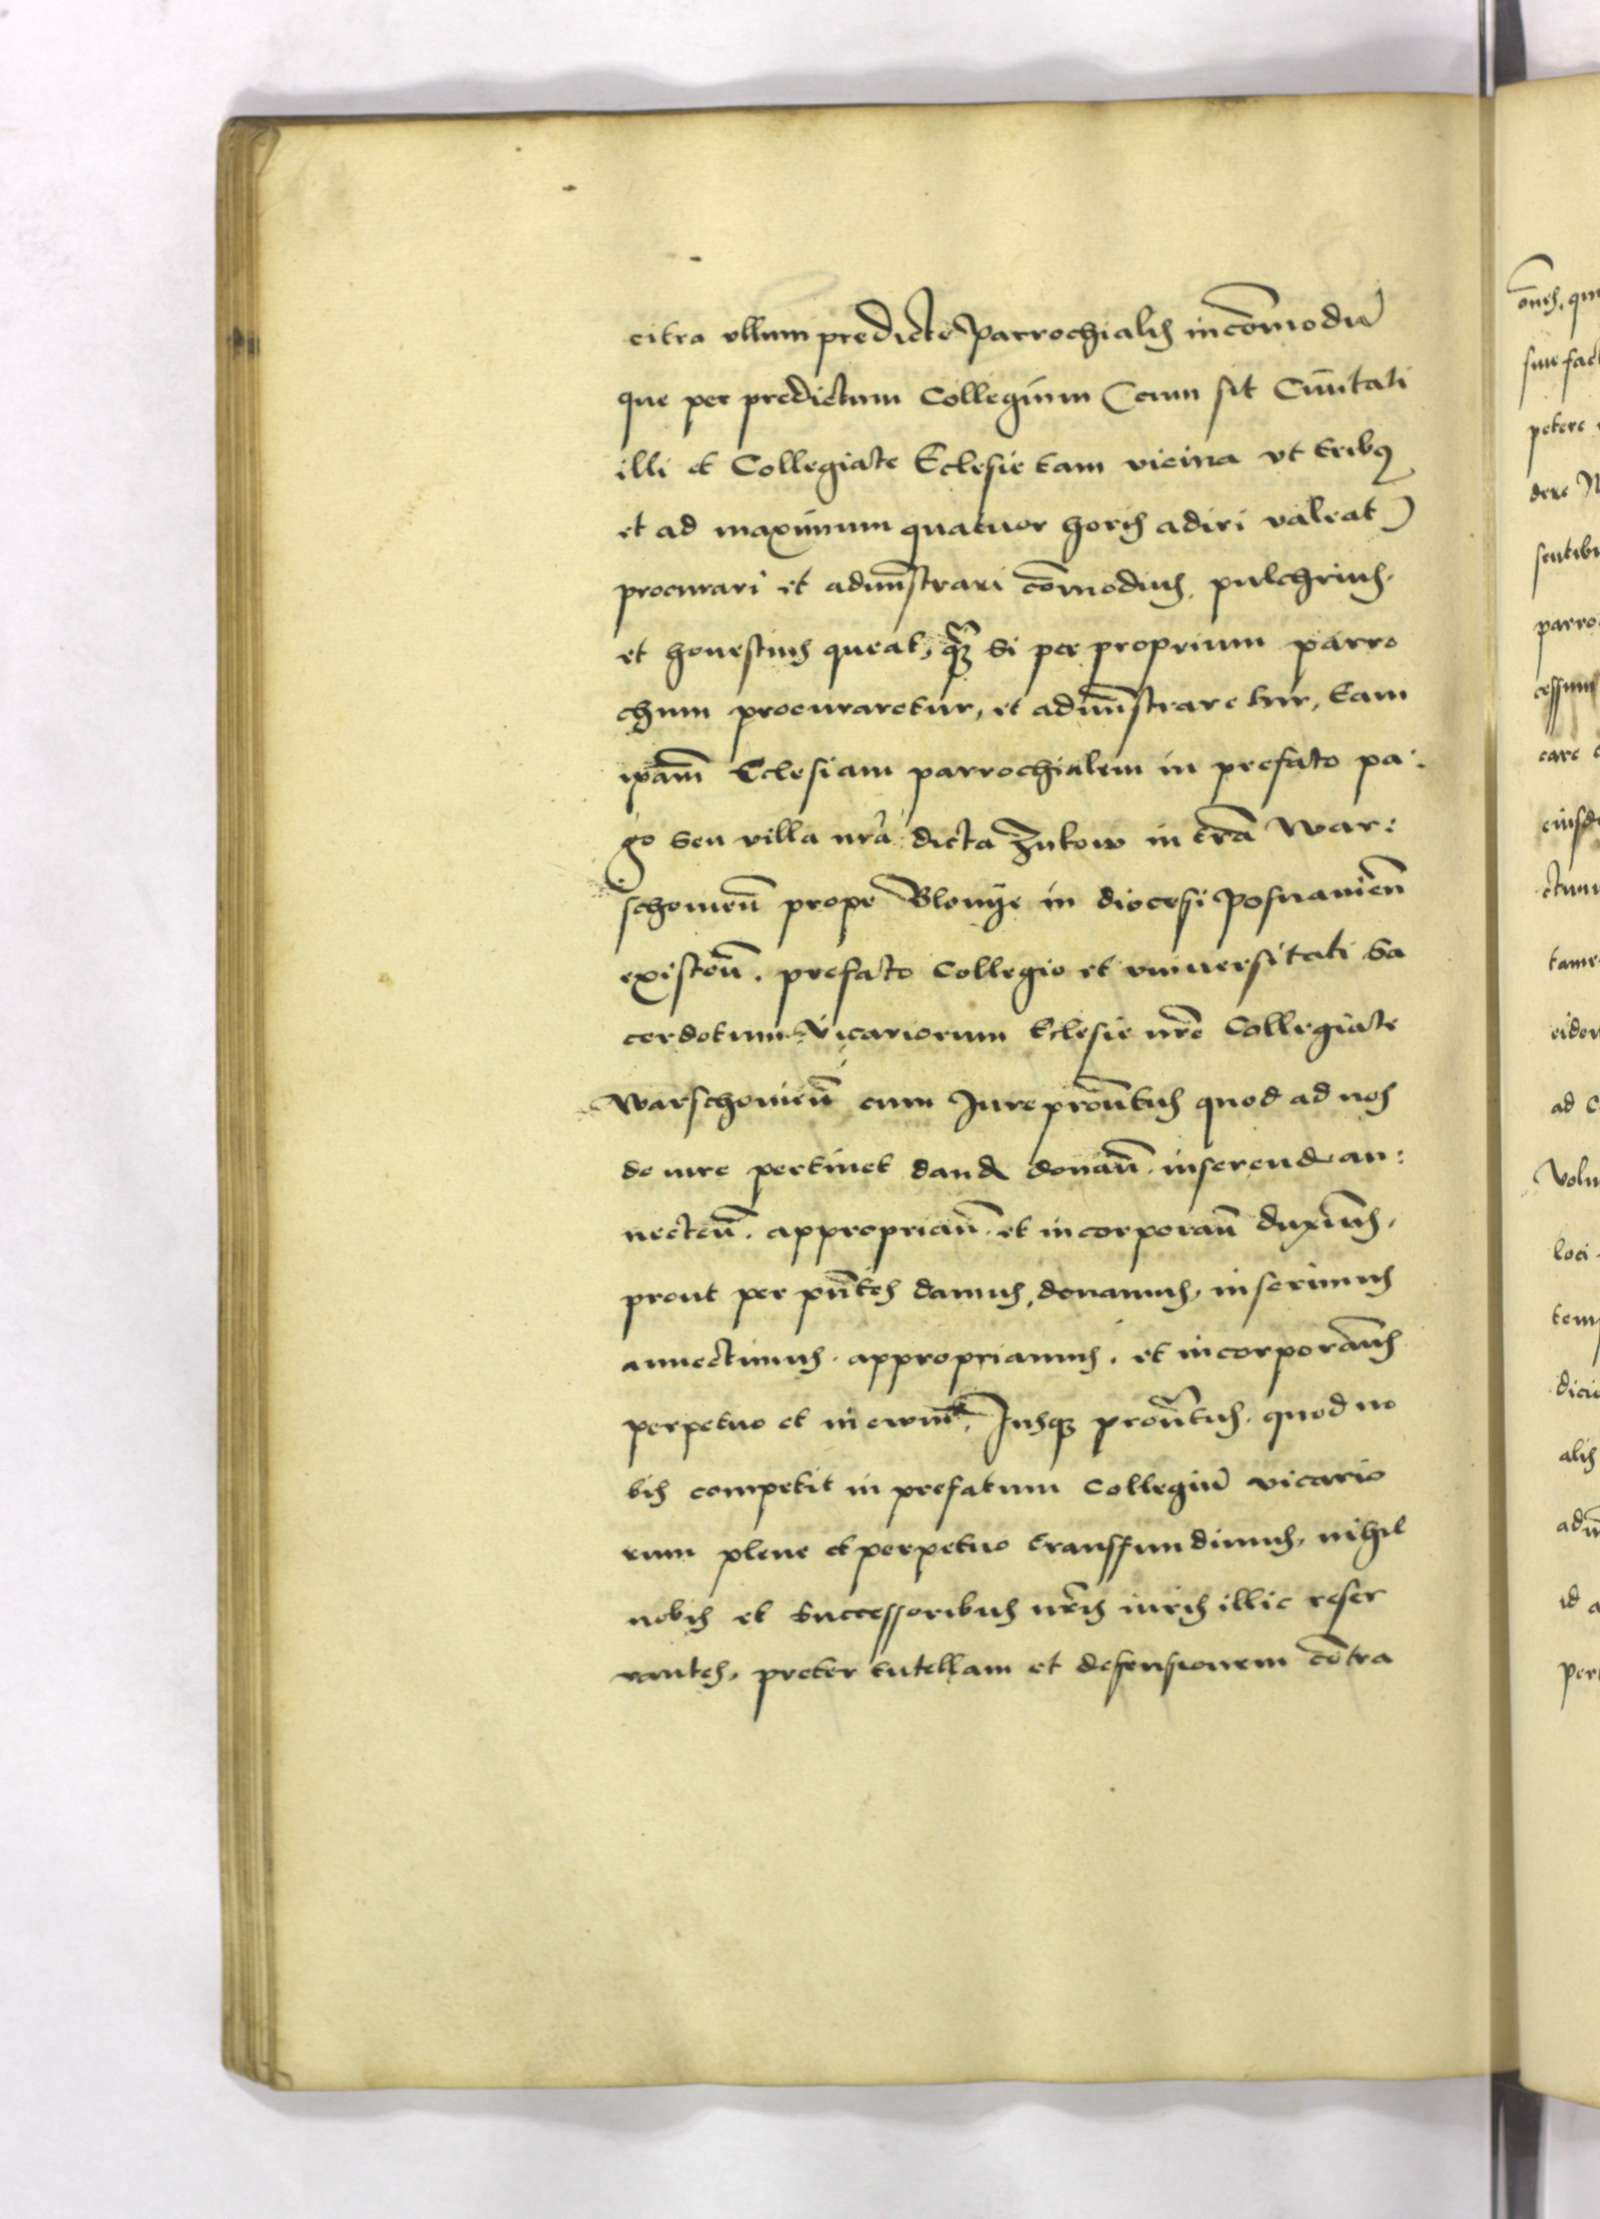 citra ullum predicte parrochialis incōmodū
que per predictum Collegium (cum sit Civitati
illi et Collegiate Eclesie tam vicina vt tribꝰ
et ad maximum quatuor horis adiri valeat)
procurari et admīstrari cōmodius, pulchrius,
et honestius queat, qȝ si per proprium parro
chum procuraretur, et admīstraretur, Eam
ip̄am Eclesiam parrochialem in prefato pa:
go seu villa nr̄a dicta Zukow in tr̄a War:
schouieñ prope Blonye in diocesi Posnanieñ
existeñ. prefato Collegio et vniuersitati Sa
cerdotum Vicariorum Eclesie nr̄e Collegiate
Warschouieñ cum Jure pr̄onatus quod ad nos
de iure pertinet dand donañ. inserend an:
necteñ. appropriañ. et incorporañ duxim̄s,
prout per pn̄tes damus, donamus, inserimus
annectimus. appropriamus. et incorporam̄s
perpetuo et in ewm̄. Jusqȝ pr̄onatus. quod no
bis competit in prefatum Collegiū vicario
rum plene et perpetuo transffundimus, nihil
nobis et Successoribus nr̄is iuris illic reser
vantes, preter tutellam et defensionem cōtra
oēs, qui
petere
dere
sentibu
parro
cessum
care
eiusde
ctum
tame
eidem
ad
Volu
loci
tem
dici
alis
id a
per